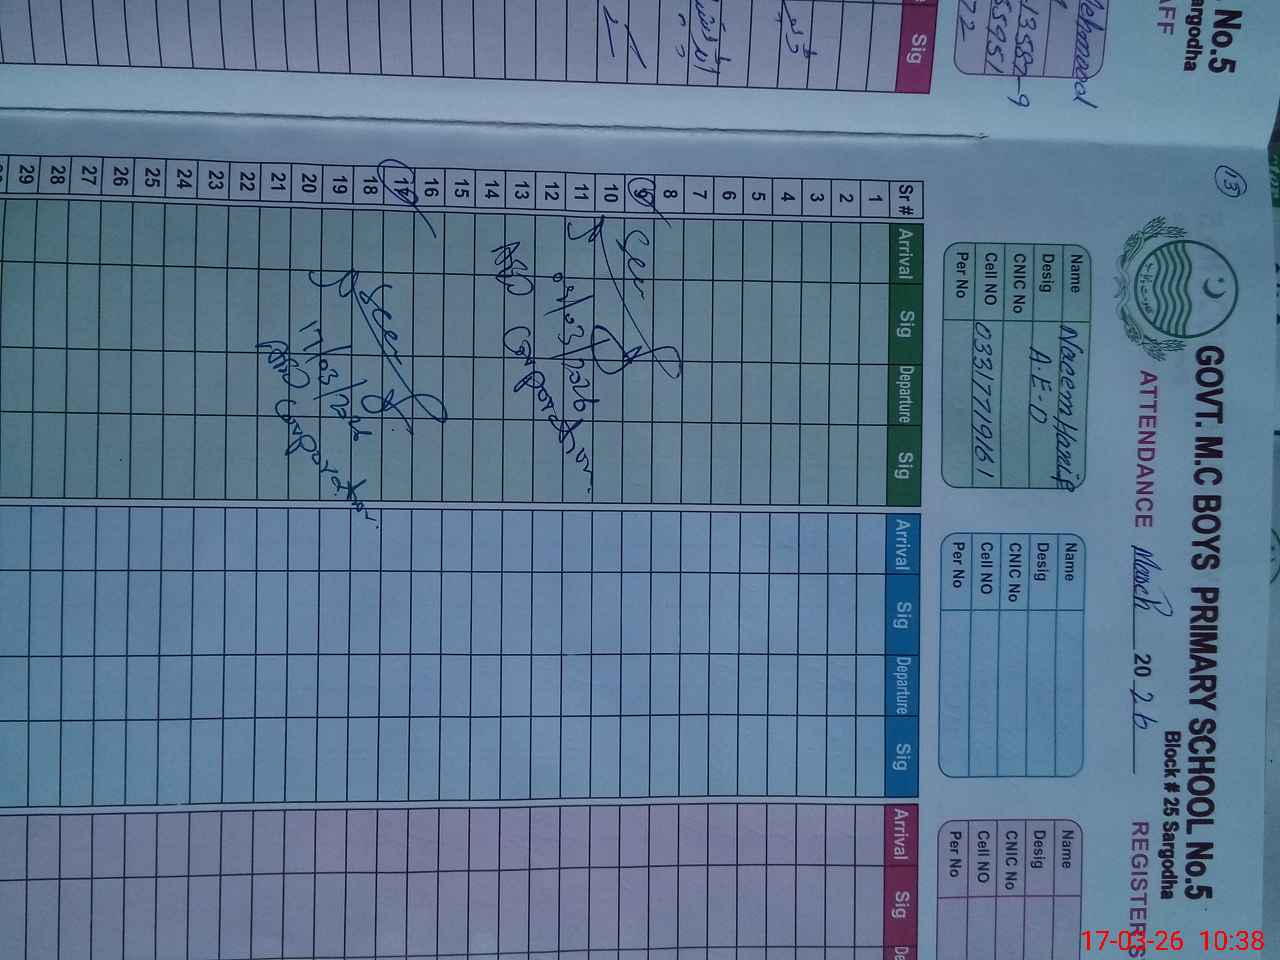 No.5
argodha
AFF
ehmood
13582-9
55951
72
Sig
13
GOVT. M.C BOYS PRIMARY SCHOOL No.5
Block # 25 Sargodha
ATTENDANCE March 2026 REGISTERS
Name Naeem Hanif
Desig A.E-O
CNIC No
Cell NO 03317719161
Per No
Name
Desig
CNIC No
Cell NO
Per No
Name
Desig
CNIC No
Cell NO
Per No
Sr # Arrival Sig Departure Sig Arrival Sig Departure Sig Arrival Sig De
1
2
3
4
5
6
7
8
9
Seen
10
11
09/03/2026
12
AEO Corporation
13
14
15
16
17
Seen
18
19
17/03/2026
20
AEO Corporation
21
22
23
24
25
26
27
28
29
17-03-26 10:38